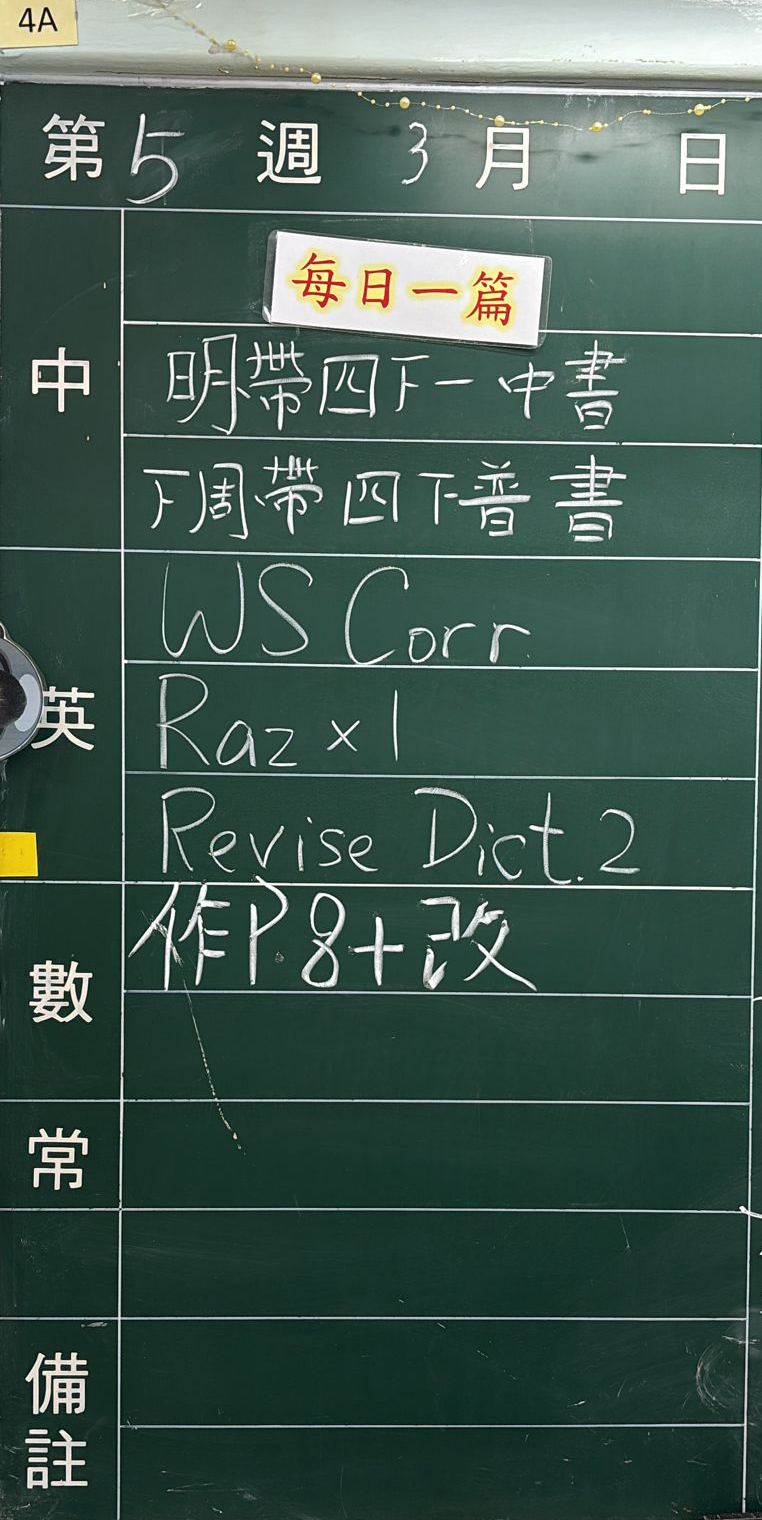 4A
第5週 3月 日
每日一篇
中
明帶四下一中書
下周帶四下普書
WS Corr.
英
Raz x 1
Revise Dict. 2
數
作P.8+改
常
備註